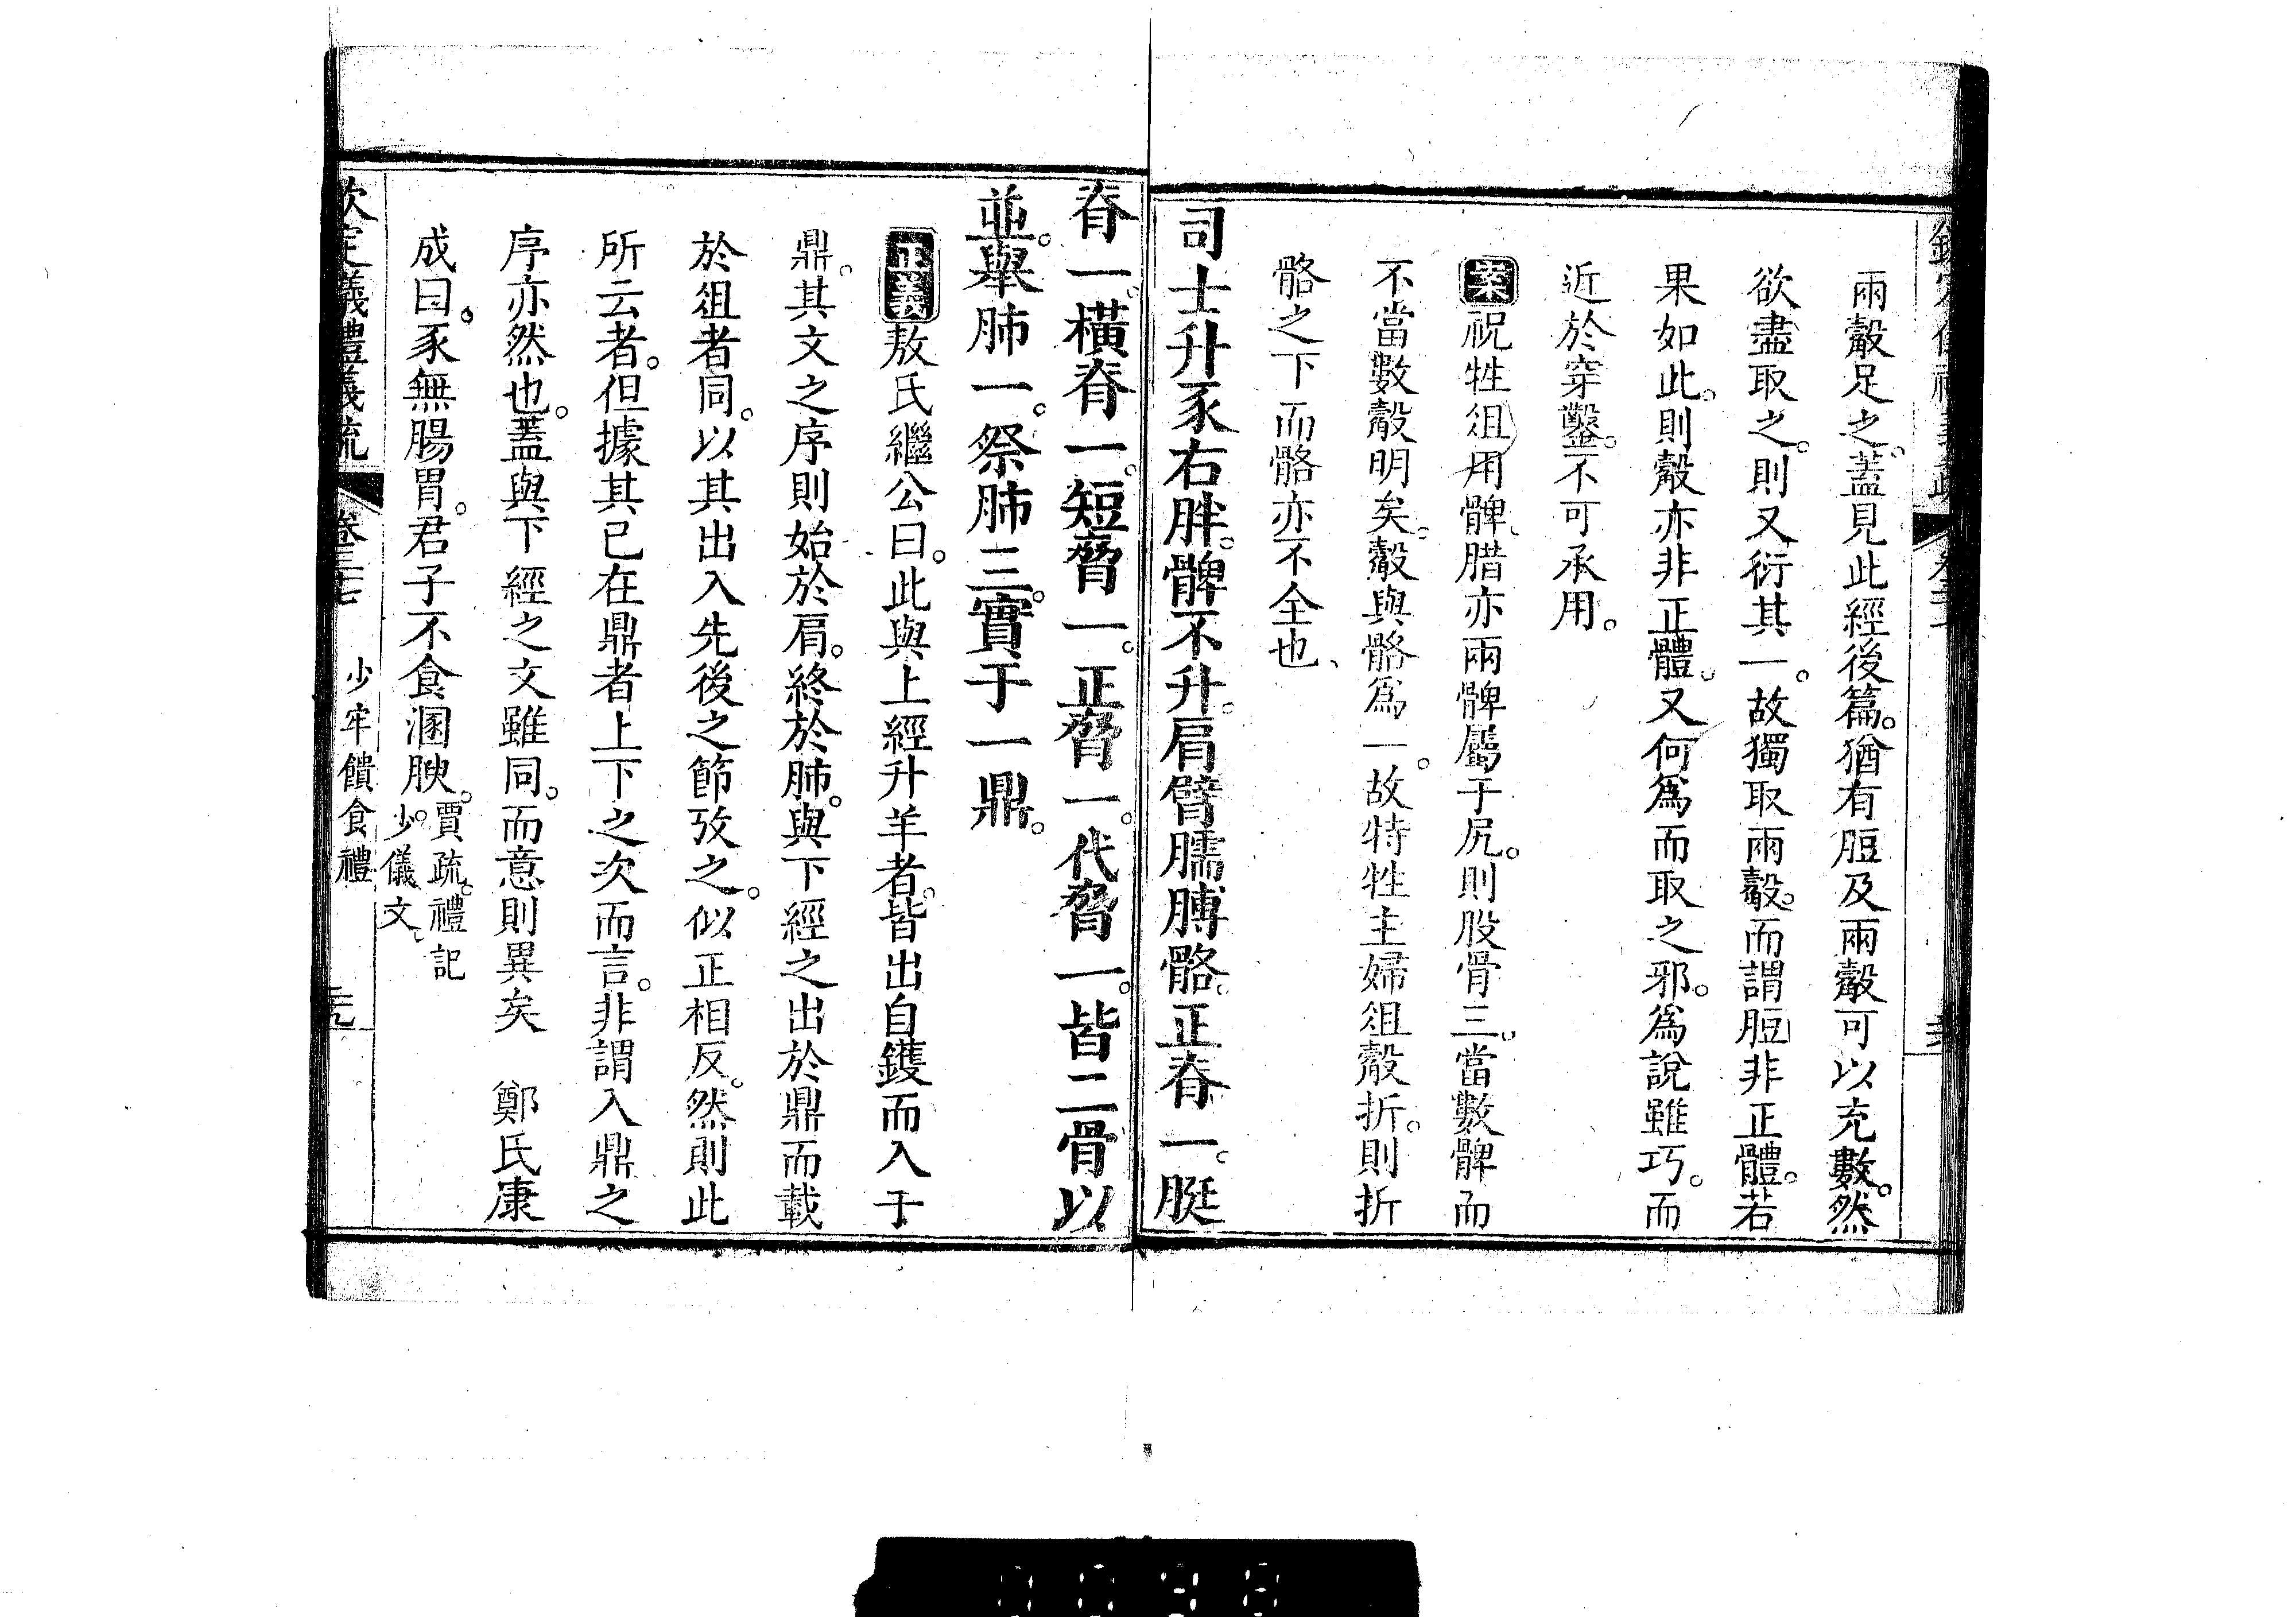 兩觳足之。蓋見此經後篇。猶有脰及兩觳可以充數。然
欲盡取之。則又衍其一。故獨取兩觳。而謂脰非正體。若
果如此。則觳亦非正體。又何爲而取之邪。爲說雖巧。而
近於穿鑿。不可承用。
案祝牲俎用髀、腊亦兩髀屬于尻。則股骨三。當數髀而
不當數觳明矣。觳與骼爲一。故特牲主婦俎觳折。則折
骼之下而骼亦不全也、
司士升豕右胖。髀不升。肩臂臑膊骼。正脊一。脡
脊一。橫脊一。短脅一。正脅一。代脅一。皆二骨以
並。舉肺一。祭肺三。實于一鼎。
正義敖氏繼公曰。此與上經升羊者。皆出自鑊而入于
鼎。其文之序則始於肩。終於肺。與下經之出於鼎而載
於俎者同。以其出入先後之節攷之。似正相反。然則此
所云者。但據其已在鼎者上下之次而言。非謂入鼎之
序亦然也。蓋與下經之文雖同。而意則異矣 鄭氏康
成曰。豕無腸胃。君子不食溷腴。賈疏。禮記少儀文。
欽定儀禮義疏 卷三七 少牢饋食禮